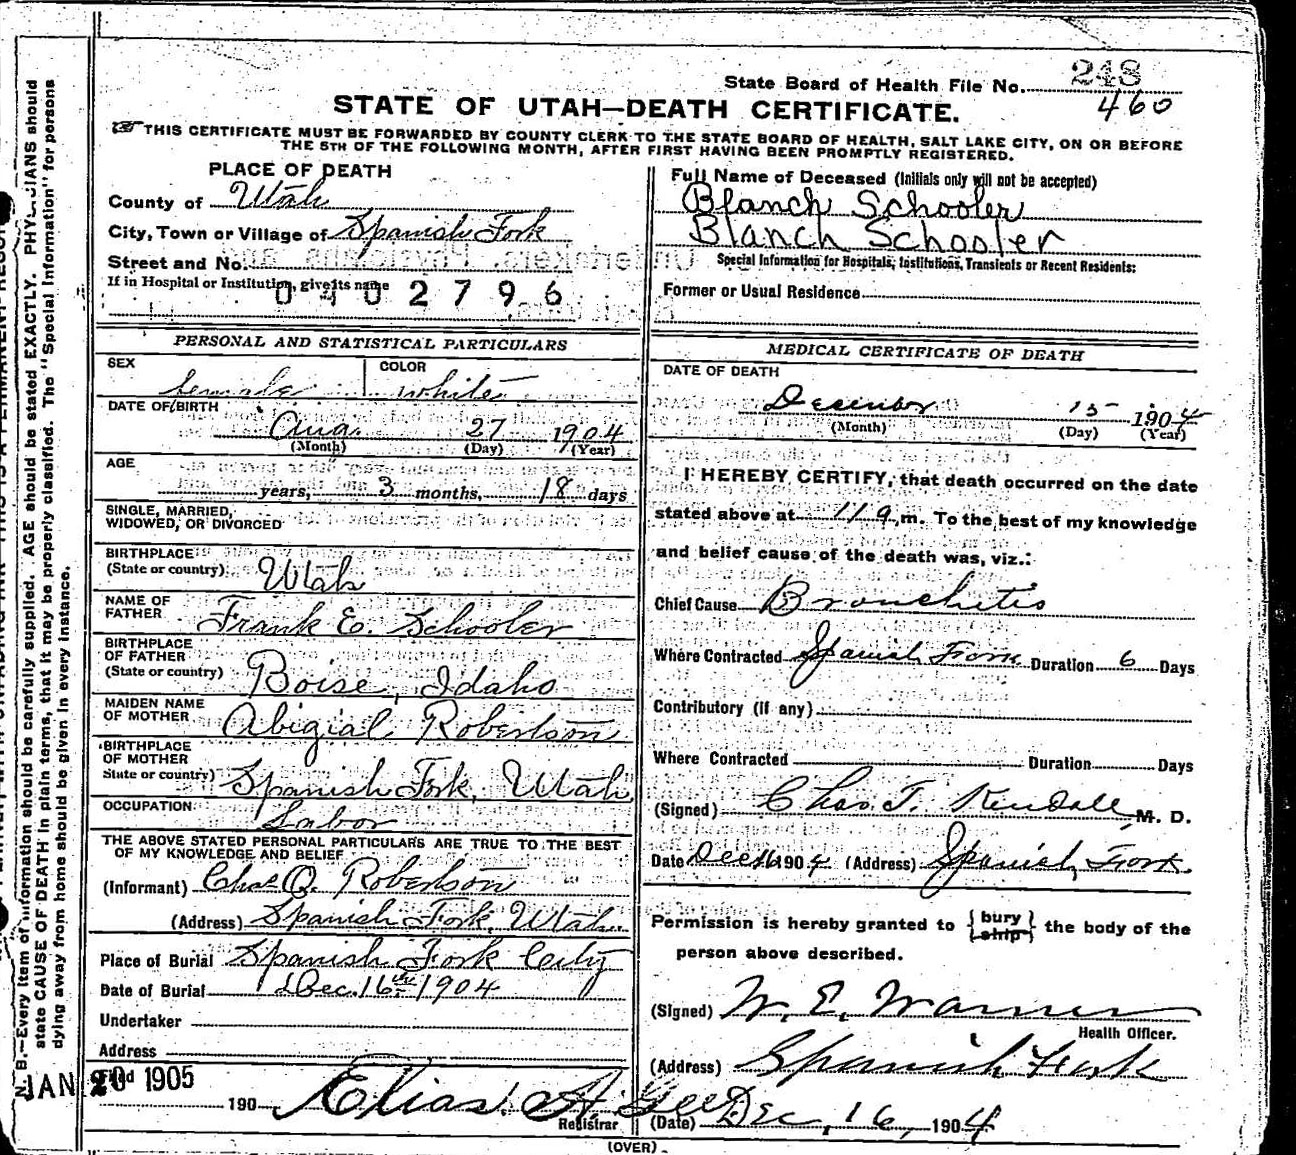 State Board of Health File No. 248
460
STATE OF UTAH—DEATH CERTIFICATE.
THIS CERTIFICATE MUST BE FORWARDED BY COUNTY CLERK TO THE STATE BOARD OF HEALTH, SALT LAKE CITY, ON OR BEFORE
THE 5TH OF THE FOLLOWING MONTH, AFTER FIRST HAVING BEEN PROMPTLY REGISTERED.
PLACE OF DEATH
County of Utah
City, Town or Village of Spanish Fork
Street and No.
If in Hospital or Institution, give its name
0402796
Full Name of Deceased (Initials only will not be accepted)
Blanch Schooler
Blanch Schooler
Special Information for Hospitals, Institutions, Transients or Recent Residents:
Former or Usual Residence
PERSONAL AND STATISTICAL PARTICULARS
SEX female COLOR white
DATE OF BIRTH
Aug. 27 1904
(Month) (Day) (Year)
AGE
years, 3 months, 18 days
SINGLE, MARRIED,
WIDOWED, OR DIVORCED
BIRTHPLACE
(State or country) Utah
NAME OF
FATHER Frank E. Schooler
BIRTHPLACE
OF FATHER
(State or country) Boise, Idaho
MAIDEN NAME
OF MOTHER Abigial Robertson
BIRTHPLACE
OF MOTHER
State or country) Spanish Fork, Utah
OCCUPATION Labor
THE ABOVE STATED PERSONAL PARTICULARS ARE TRUE TO THE BEST
OF MY KNOWLEDGE AND BELIEF
(Informant) Chas O. Robertson
(Address) Spanish Fork, Utah
Place of Burial Spanish Fork City
Date of Burial Dec. 16th 1904
Undertaker
Address
Filed
JAN 20 1905
190 Elias A. Gee
Registrar
MEDICAL CERTIFICATE OF DEATH
DATE OF DEATH
December 15 1904
(Month) (Day) (Year)
I HEREBY CERTIFY, that death occurred on the date
stated above at 11 a, m. To the best of my knowledge
and belief cause of the death was, viz.:
Chief Cause Bronchetis
Where Contracted Spanish Fork Duration 6 Days
Contributory (if any)
Where Contracted Duration Days
(Signed) Chas. T. Kendall, M. D.
Date Dec 16 1904 (Address) Spanish Fork.
Permission is hereby granted to {bury ship} the body of the
person above described.
(Signed) W. E. Warner
Health Officer.
(Address) Spanish Fork
(Date) Dec, 16, 1904
(OVER)
N. B.—Every item of information should be carefully supplied. AGE should be stated EXACTLY. PHYSICIANS should
state CAUSE OF DEATH in plain terms, that it may be properly classified. The "Special Information" for persons
dying away from home should be given in every instance.